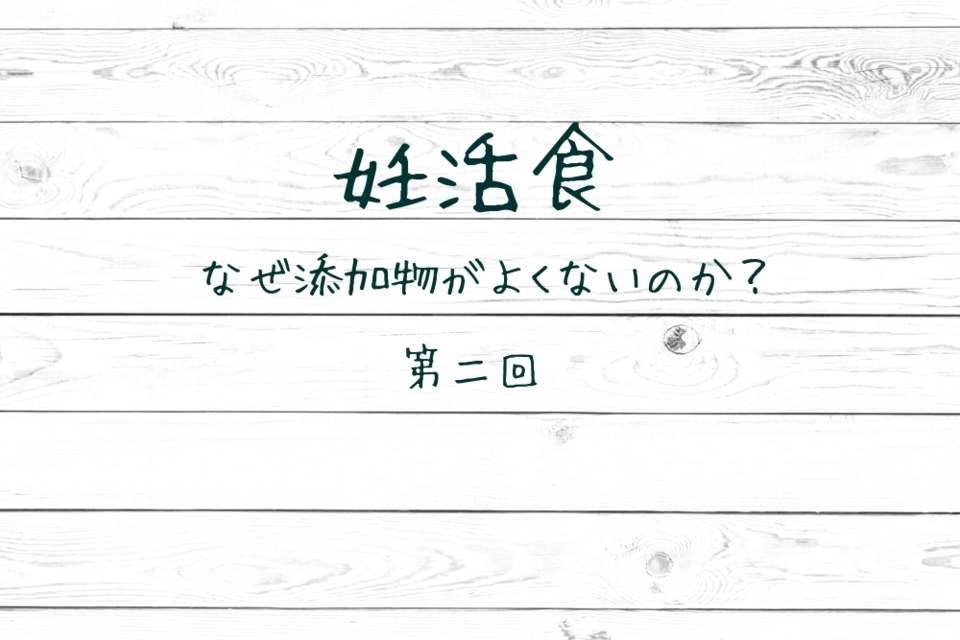 妊活食
なぜ添加物がよくないのか？
第二回